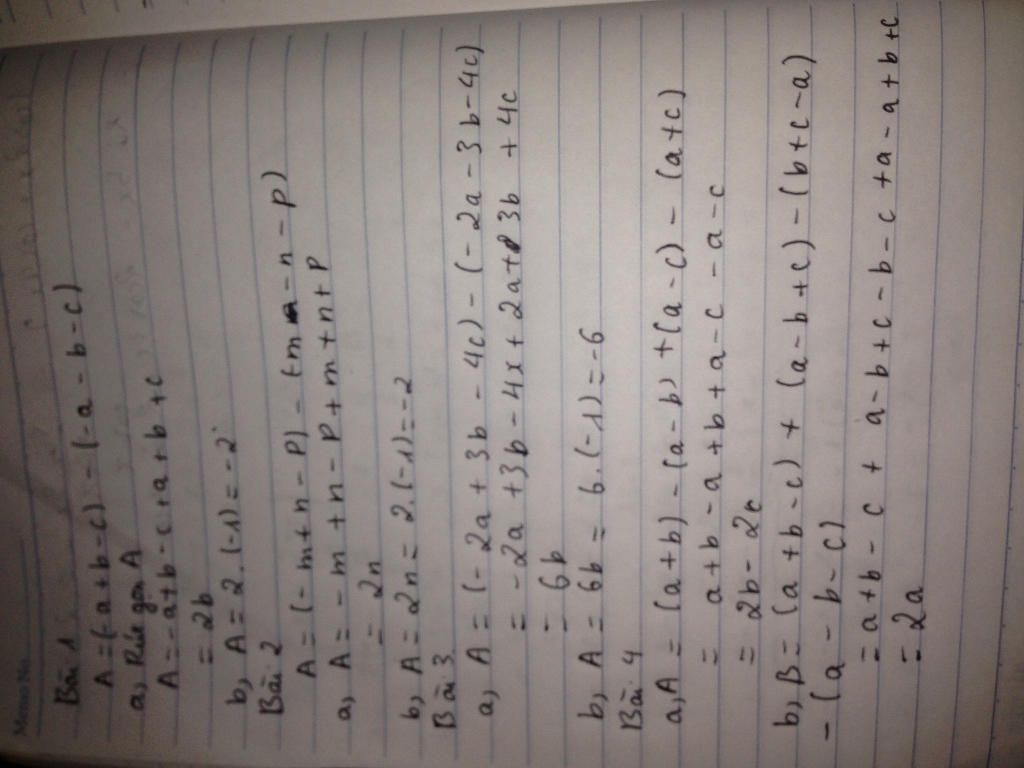 Memo No.
Bài 1
A = (-a + b - c) - (-a - b - c)
a, Rút gọn A
A = -a + b - c + a + b + c
= 2b
b, A = 2.(-1) = -2
Bài 2
A = (-m + n - p) - (+m - n - p)
a, A = -m + n - p + m + n + p
= 2n
b, A = 2n = 2.(-1) = -2
Bài 3
a, A = (-2a + 3b - 4c) - (-2a - 3b - 4c)
= -2a + 3b - 4x + 2a + 3b + 4c
= 6b
b, A = 6b = 6.(-1) = -6
Bài 4
a, A = (a + b) - (a - b) + (a - c) - (a + c)
= a + b - a + b + a - c - a - c
= 2b - 2c
b, B = (a + b - c) + (a - b + c) - (b + c - a)
- (a - b - c)
= a + b - c + a - b + c - b - c + a - a + b + c
= 2a